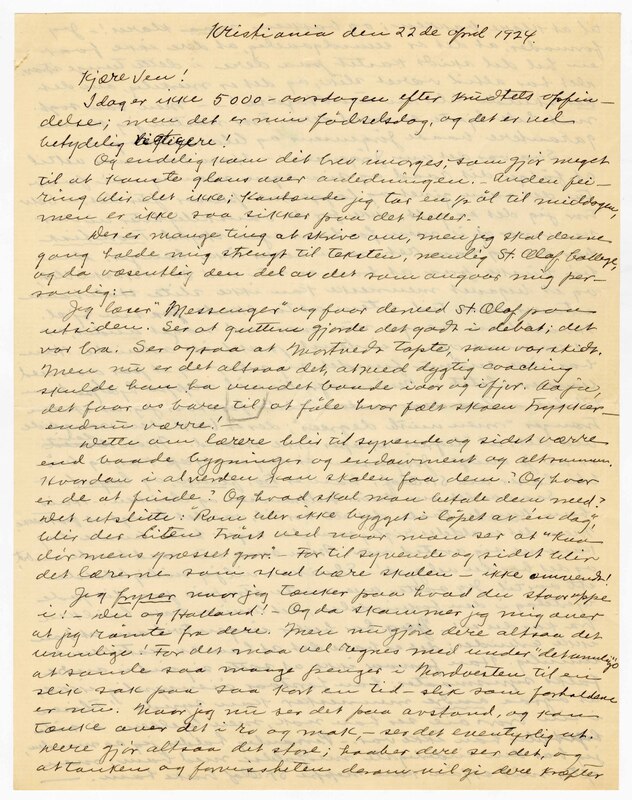 Kristiania den 22de April 1924.
Kjære Ven!
Idag er ikke 5000-aarsdagen efter krudtets opfin-
delse; men det er min fødselsdag, og det er vel
betydelig vigtigere!
Og endelig kom dit brev imorges, som gjør meget
til at kaste glans over anledningen. Anden fei-
ring blir det ikke; kanhende jeg tar en pøl til middagen,
men er ikke saa sikker paa det heller.
Der er mange ting at skrive om, men jeg skal denne
gang holde mig strengt til teksten, nemlig St. Olaf College,
og da væsentlig den del av det som angaar mig per-
sonlig:-
Jeg læser "Messenger" og faar derved St. Olaf paa
utsiden. Ser at guttene gjorde det godt i debat; det
var bra. Ser ogsaa at Mortvedt tapte, som var skidt.
Men nu er det altsaa det, at med dygtig coaching
skulde han ha vundet baade ivaar og ifjor. Aaja,
det faar os bare til at føle hvor fælt skoen trykker
endnu værre!-
Dette om lærere blir til syvende og sidst værre
end baade bygninger og endowment og altsammen.
Hvordan i alverden kan skolen faa dem? Og hvor
er de at finde? Og hvad skal man betale dem med?
Det utslitte: "Rom blir ikke bygget i løpet av én dag",
blir der liten trøst ved naar man ser at "kua
dør mens græsset gror".- For til syvende og sidst blir
det lærerne som skal bære skolen - ikke omvendt!
Jeg fryser naar jeg tænker paa hvad du staar oppe
i! - Du og Holland! - Og da skammer jeg mig over
at jeg rømte fra dere. Men nu gjør dere altsaa det
umulige! For det maa vel regnes med under "det umulige"
at samle saa mange penger i Nordvesten til en
slik sak paa saa kort en tid - slik som forholdene
er nu. Naar jeg nu ser det paa avstand, og kan
tænke over det i ro og mak, - ser det eventyrlig ut.
Dere gjør altsaa det store; haaber dere ser det, og
at tanken og forvissheten derom vil gi dere kræfter